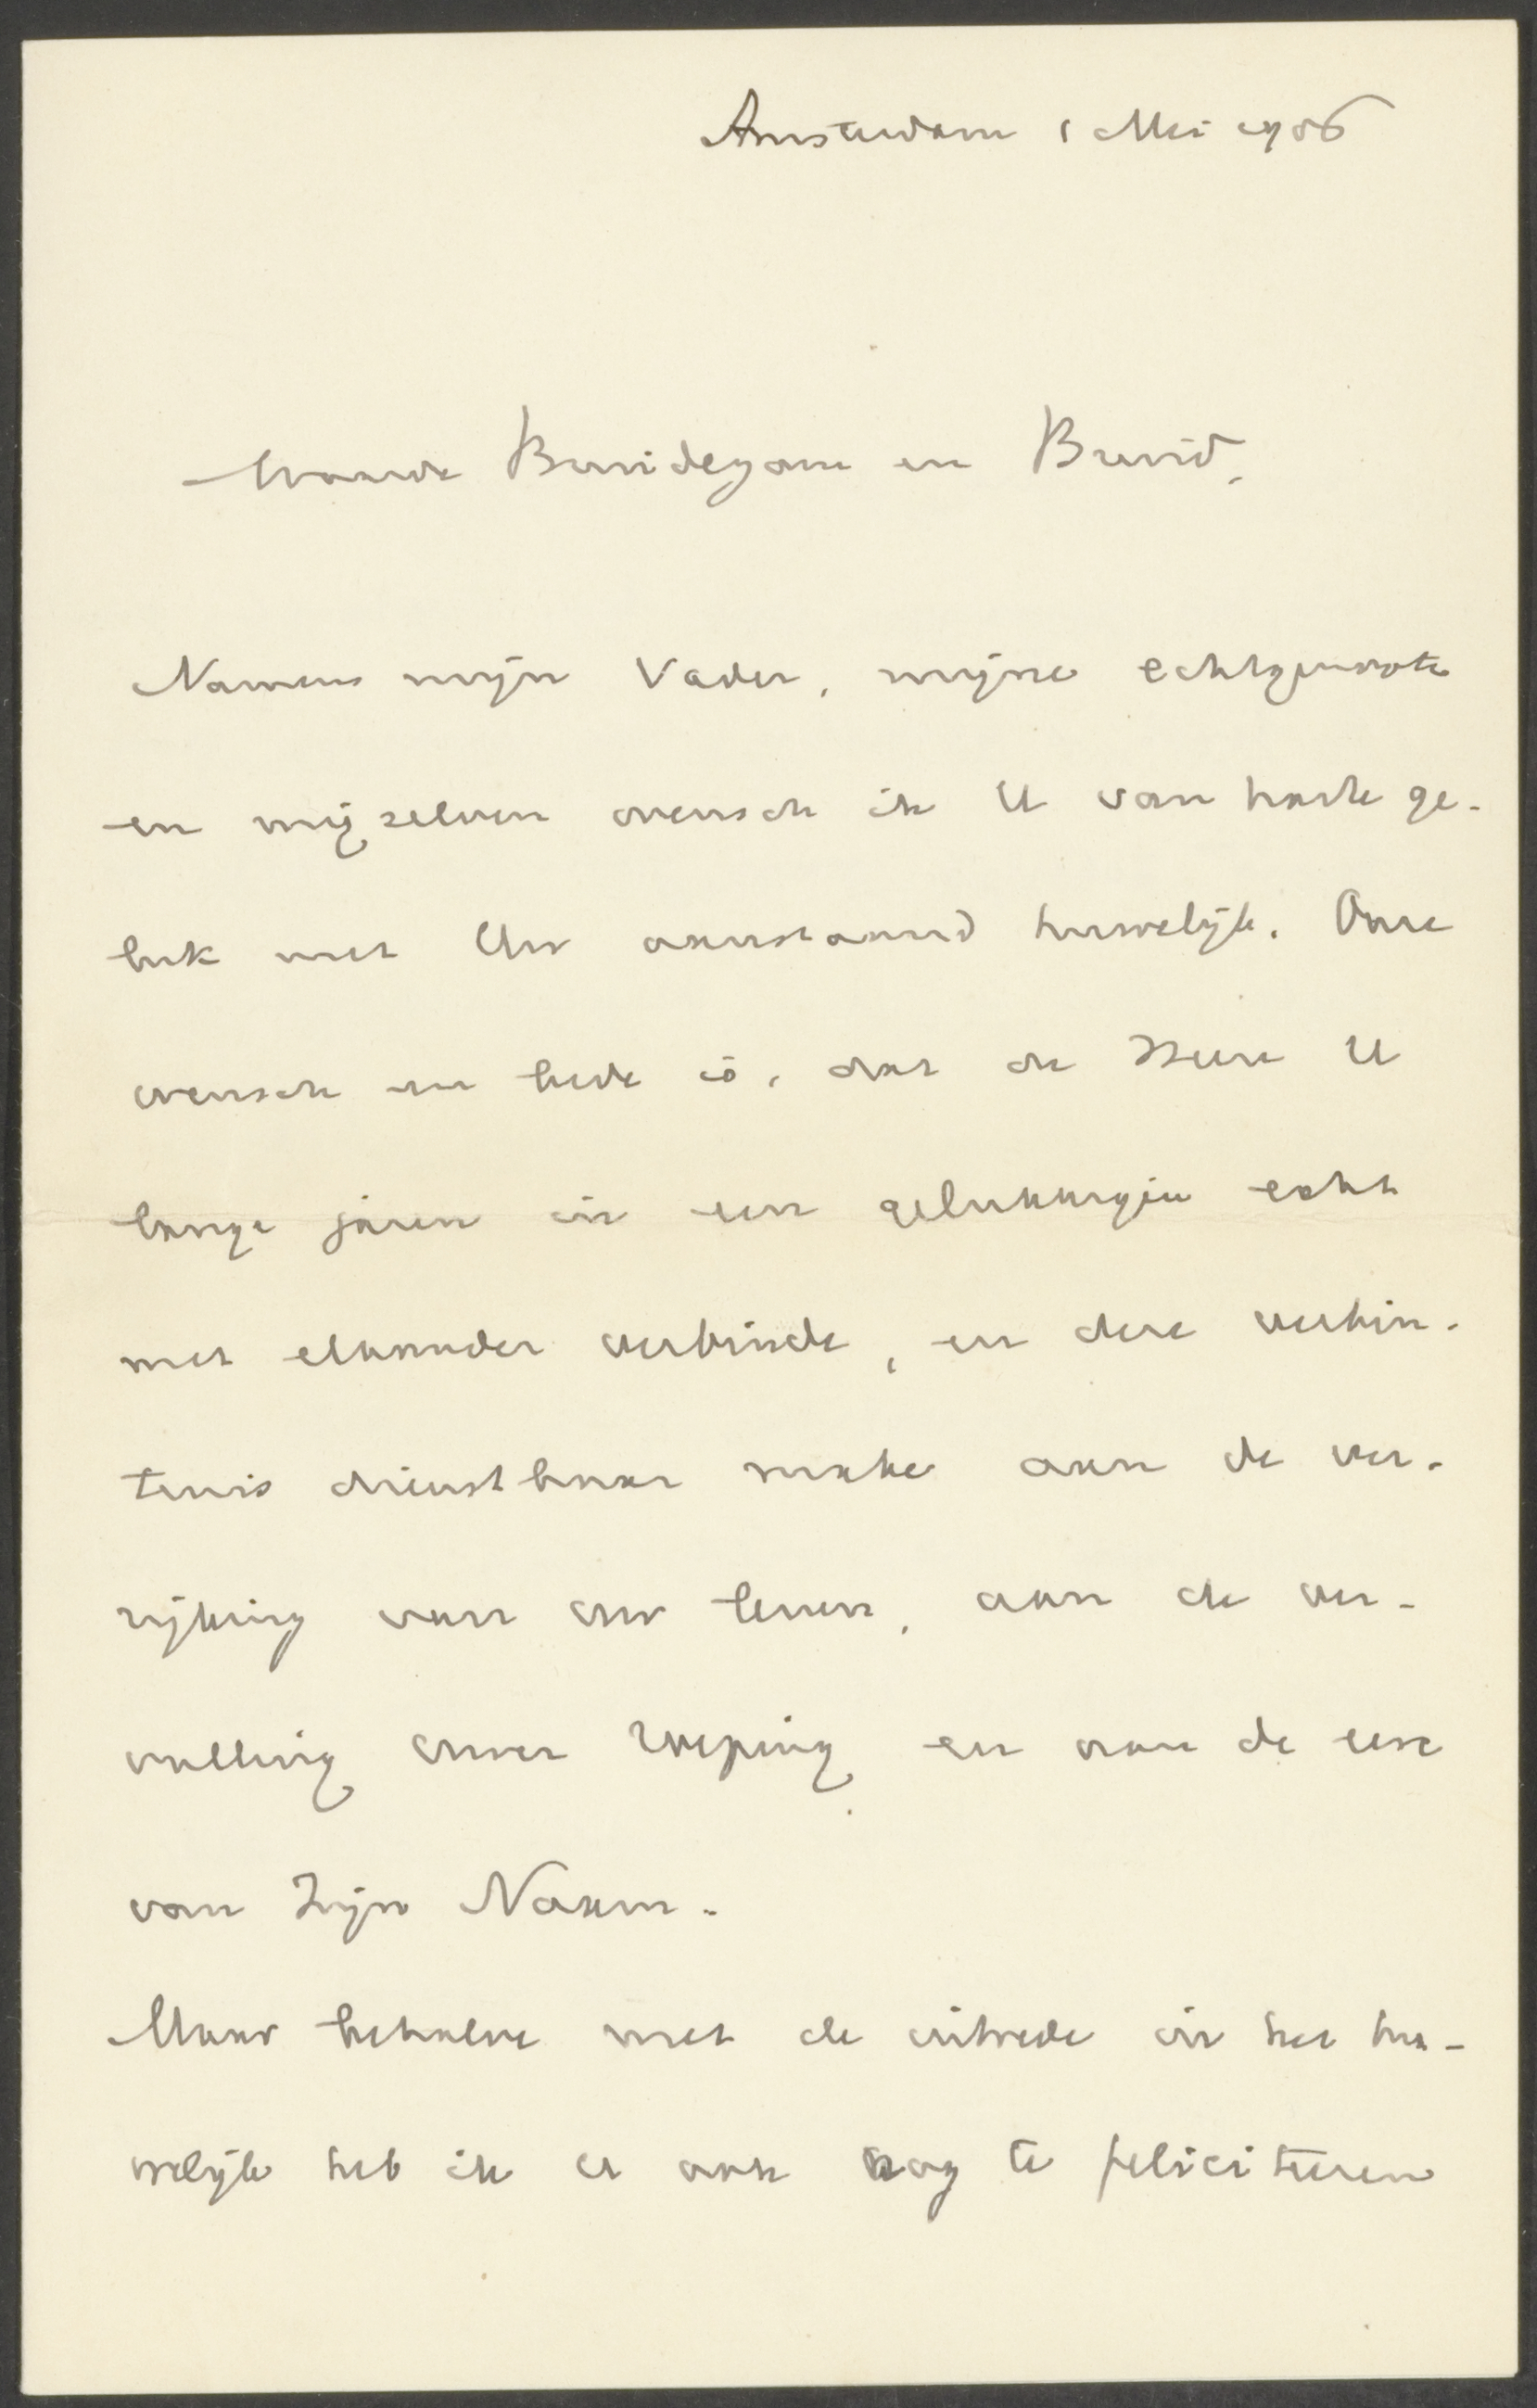 Amsterdam 1 Mei 1906
Waarde Bruidegom en Bruid,
Namens mijn Vader, mijne echtgenoote
en mijzelven wensch ik U van harte ge-
luk met Uw aanstaand huwelijk. Onze
wensch en bede is, dat de Heere U
lange jaren in een gelukkigen echt
met elkander verbinde, en deze verbin-
tenis dienstbaar make aan de ver-
rijking van uw leven, aan de ver-
vulling uwer roeping en aan de eere
van Zijn Naam.
Maar behalve met de intrede in het hu-
welijk heb ik er ook nog te feliciteeren